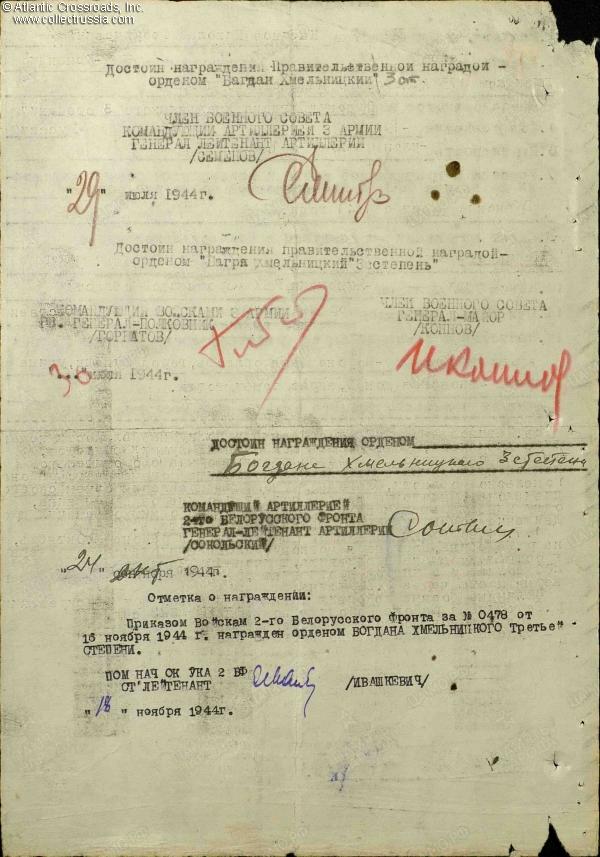 © Atlantic Crossroads, Inc.
www.collectrussia.com
Достоин награждения Правительственной наградой -
орденом "Багдан Хмельницкий" 3 ст.
ЧЛЕН ВОЕННОГО СОВЕТА
КОМАНДУЮЩИЙ АРТИЛЛЕРИЕЙ 3 АРМИИ
ГЕНЕРАЛ ЛЕЙТЕНАНТ АРТИЛЛЕРИИ
/СЕМЕНОВ/
"29" июля 1944г.
Достоин награждения правительственной наградой-
орденом "Багра Хмельницкий" 3степень"
КОМАНДУЮЩИЙ ВОЙСКАМИ 3 АРМИИ
ГВ. ГЕНЕРАЛ-ПОЛКОВНИК
/ГОРБАТОВ/
ЧЛЕН ВОЕННОГО СОВЕТА
ГЕНЕРАЛ-МАЙОР
/КОННОВ/
"30" июля 1944г.
ДОСТОИН НАГРАЖДЕНИЯ ОРДЕНОМ
Богдана Хмельницкого 3 степени
КОМАНДУЩИЙ АРТИЛЛЕРИЕЙ
2-го БЕЛОРУССКОГО ФРОНТА
ГЕНЕРАЛ-ЛЕЙТЕНАНТ АРТИЛЛЕРИИ
/СОКОЛЬСКИЙ/
"24" 1944г.
Отметка о награждении:
Приказом Войскам 2-го Белорусского Фронта за № 0478 от
16 ноября 1944 г. награжден орденом БОГДАНА ХМЕЛЬНИЦКОГО Третьей
СТЕПЕНИ.
ПОМ НАЧ ОК УКА 2 БФ
СТ ЛЕЙТЕНАНТ /ИВАШКЕВИЧ/
"18" ноября 1944г.